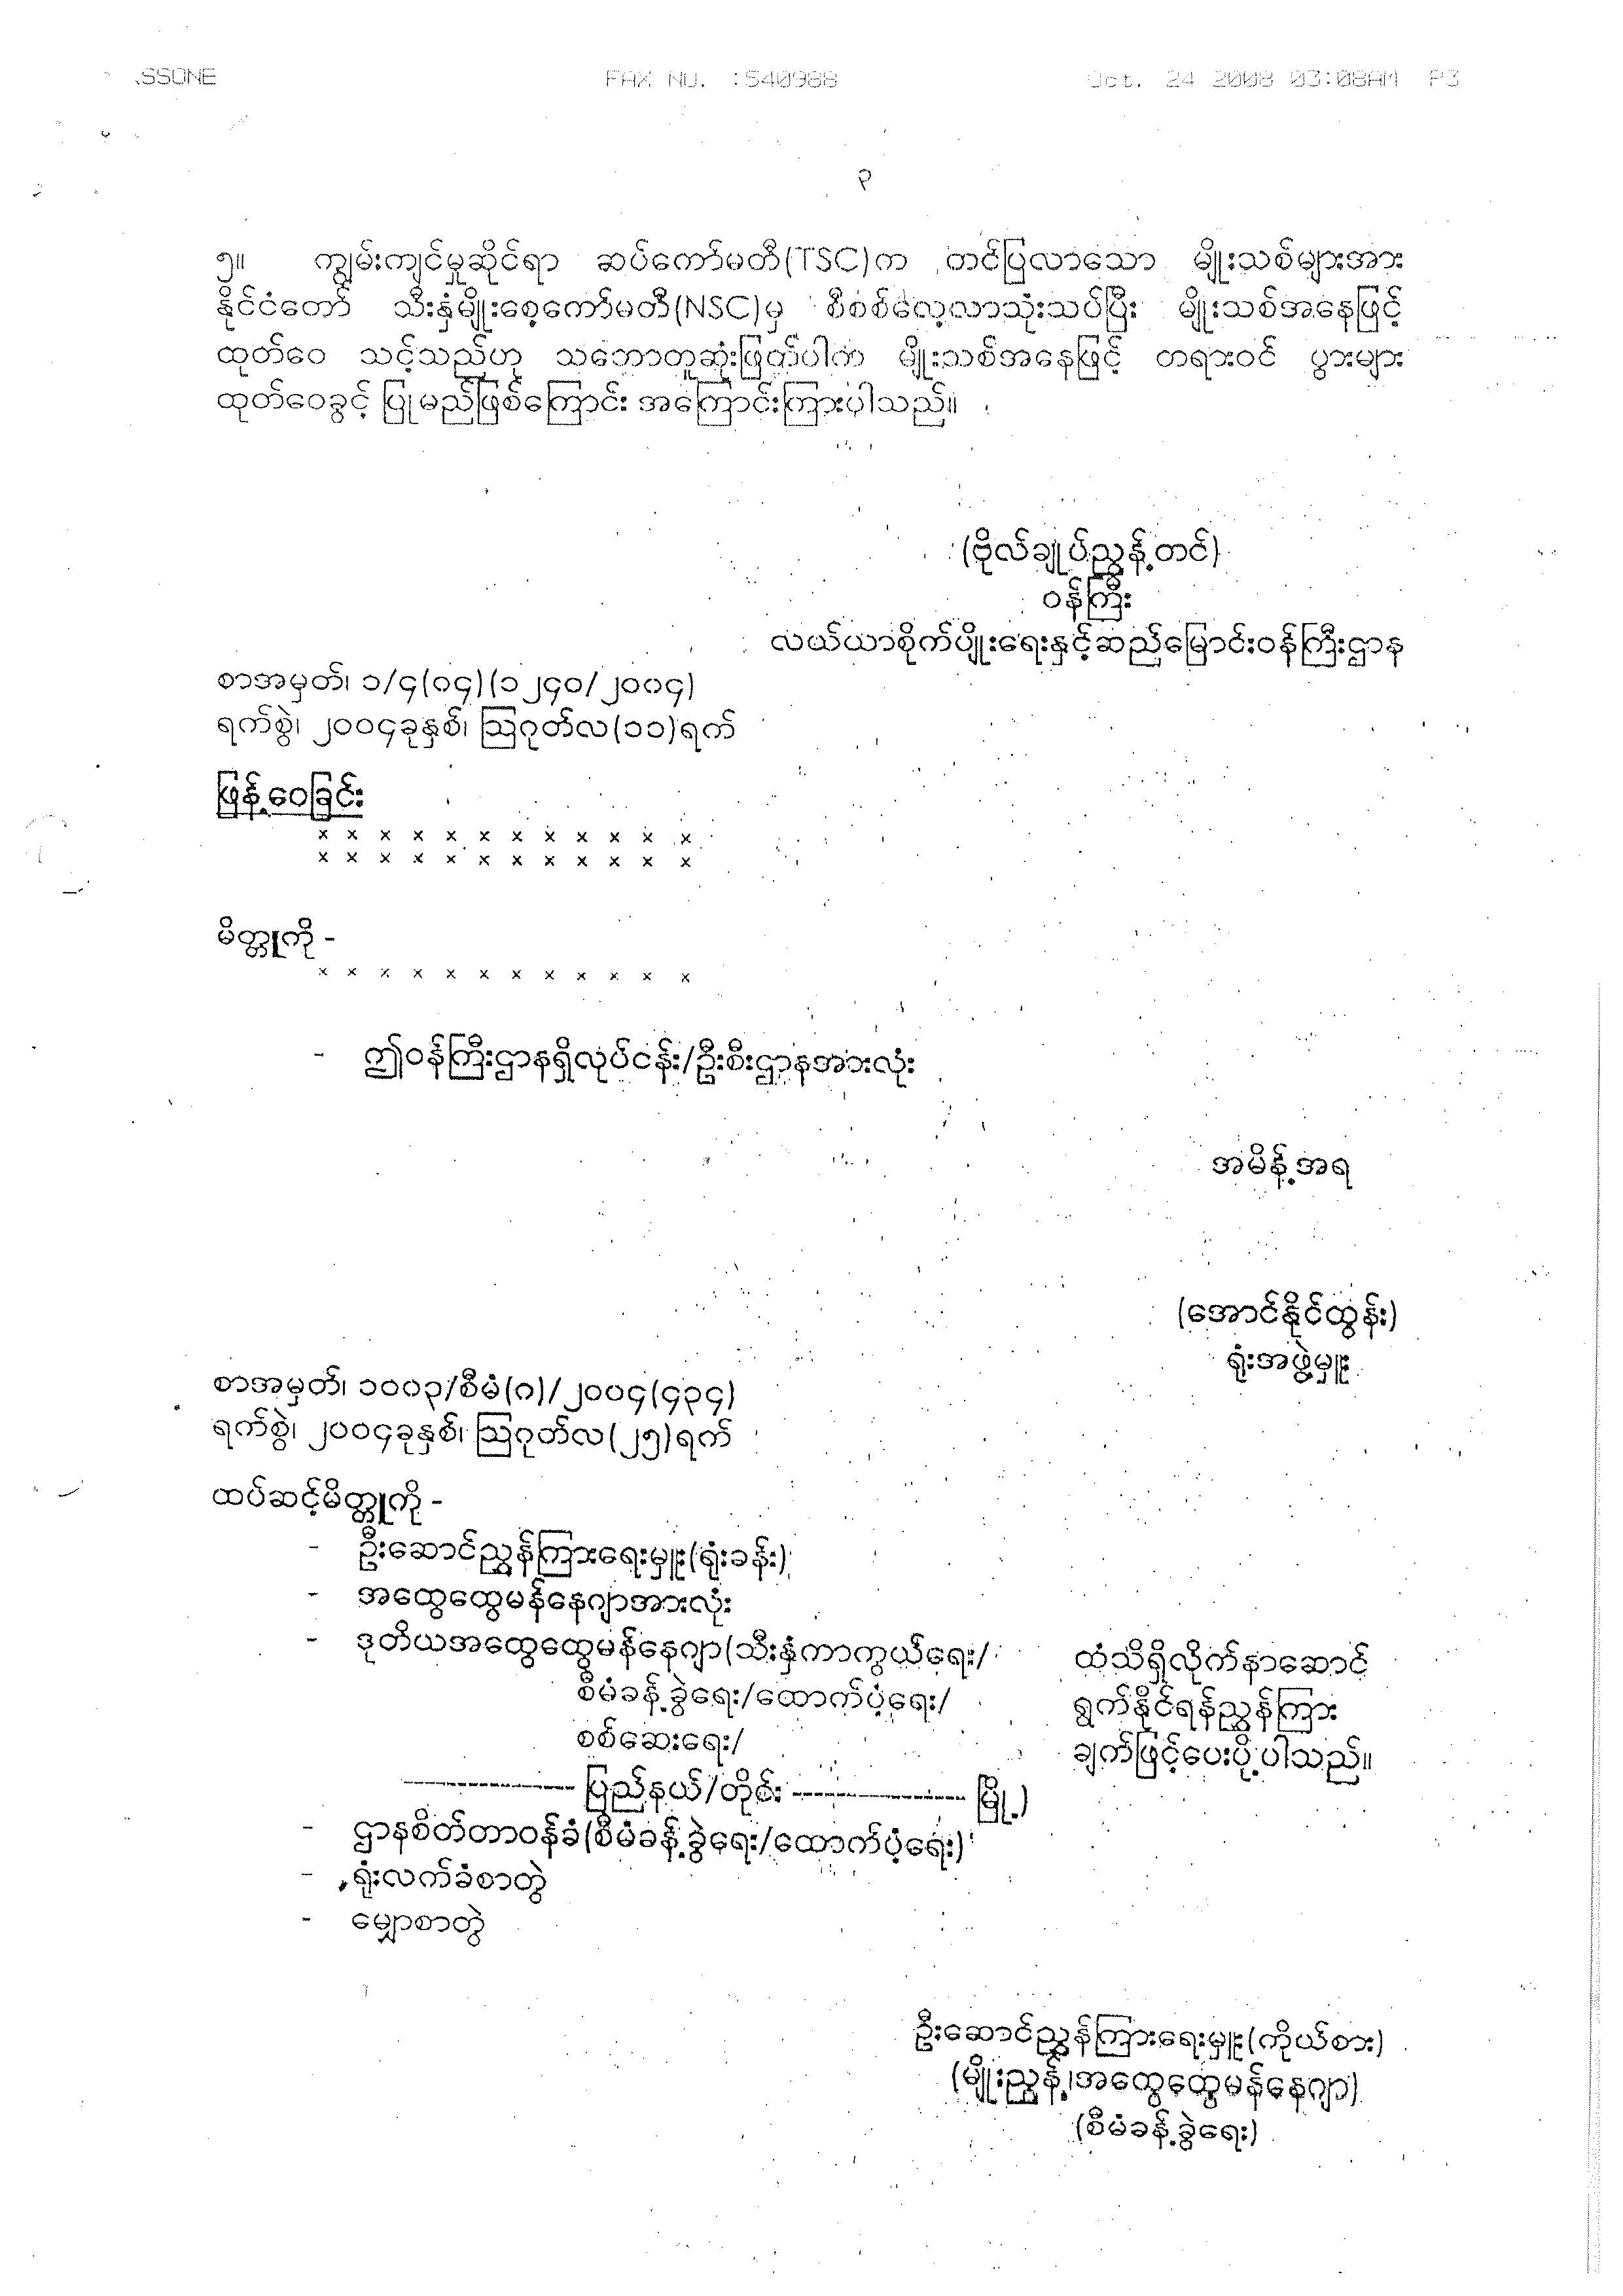 SSONE FAX NO. :540988 Oct. 24 2008 03:08AM P3
၃
၅။ ကျွမ်းကျင်မှုဆိုင်ရာ ဆပ်ကော်မတီ(TSC)က တင်ပြလာသော မျိုးသစ်များအား
နိုင်ငံတော် သီးနှံမျိုးစေ့ကော်မတီ(NSC)မှ စီစစ်လေ့လာသုံးသပ်ပြီး မျိုးသစ်အနေဖြင့်
ထုတ်ဝေ သင့်သည်ဟု သဘောတူဆုံးဖြတ်ပါက မျိုးသစ်အနေဖြင့် တရားဝင် ပွားများ
ထုတ်ဝေခွင့် ပြုမည်ဖြစ်ကြောင်း အကြောင်းကြားပါသည်။
(ဗိုလ်ချုပ်ညွန့်တင်)
ဝန်ကြီး
လယ်ယာစိုက်ပျိုးရေးနှင့်ဆည်မြောင်းဝန်ကြီးဌာန
စာအမှတ်၊ ၁/၄(၀၄)(၁၂၄၀/၂၀၀၄)
ရက်စွဲ၊ ၂၀၀၄ခုနှစ်၊ ဩဂုတ်လ(၁၁)ရက်
ဖြန့်ဝေခြင်း
x x x x x x x x x x x x
x x x x x x x x x x x x
မိတ္တူကို -
x x x x x x x x x x x x
- ဤဝန်ကြီးဌာနရှိလုပ်ငန်း/ဦးစီးဌာနအားလုံး
အမိန့်အရ
(အောင်နိုင်ထွန်း)
ရုံးအဖွဲ့မှူး
စာအမှတ်၊ ၁၀၀၃/စီမံ(ဂ)/၂၀၀၄(၄၃၄)
ရက်စွဲ၊ ၂၀၀၄ခုနှစ်၊ ဩဂုတ်လ(၂၅)ရက်
ထပ်ဆင့်မိတ္တူကို -
- ဦးဆောင်ညွှန်ကြားရေးမှူး(ရုံးခန်း)
- အထွေထွေမန်နေဂျာအားလုံး
- ဒုတိယအထွေထွေမန်နေဂျာ(သီးနှံကာကွယ်ရေး/ ထံသိရှိလိုက်နာဆောင်
စီမံခန့်ခွဲရေး/ထောက်ပံ့ရေး/ ရွက်နိုင်ရန်ညွှန်ကြား
စစ်ဆေးရေး/ ချက်ဖြင့်ပေးပို့ပါသည်။
---------------- ပြည်နယ်/တိုင်း ---------------- မြို့)
- ဌာနစိတ်တာဝန်ခံ(စီမံခန့်ခွဲရေး/ထောက်ပံ့ရေး)
- ရုံးလက်ခံစာတွဲ
- မျှောစာတွဲ
ဦးဆောင်ညွှန်ကြားရေးမှူး(ကိုယ်စား)
(မျိုးညွန့်၊အထွေထွေမန်နေဂျာ)
(စီမံခန့်ခွဲရေး)